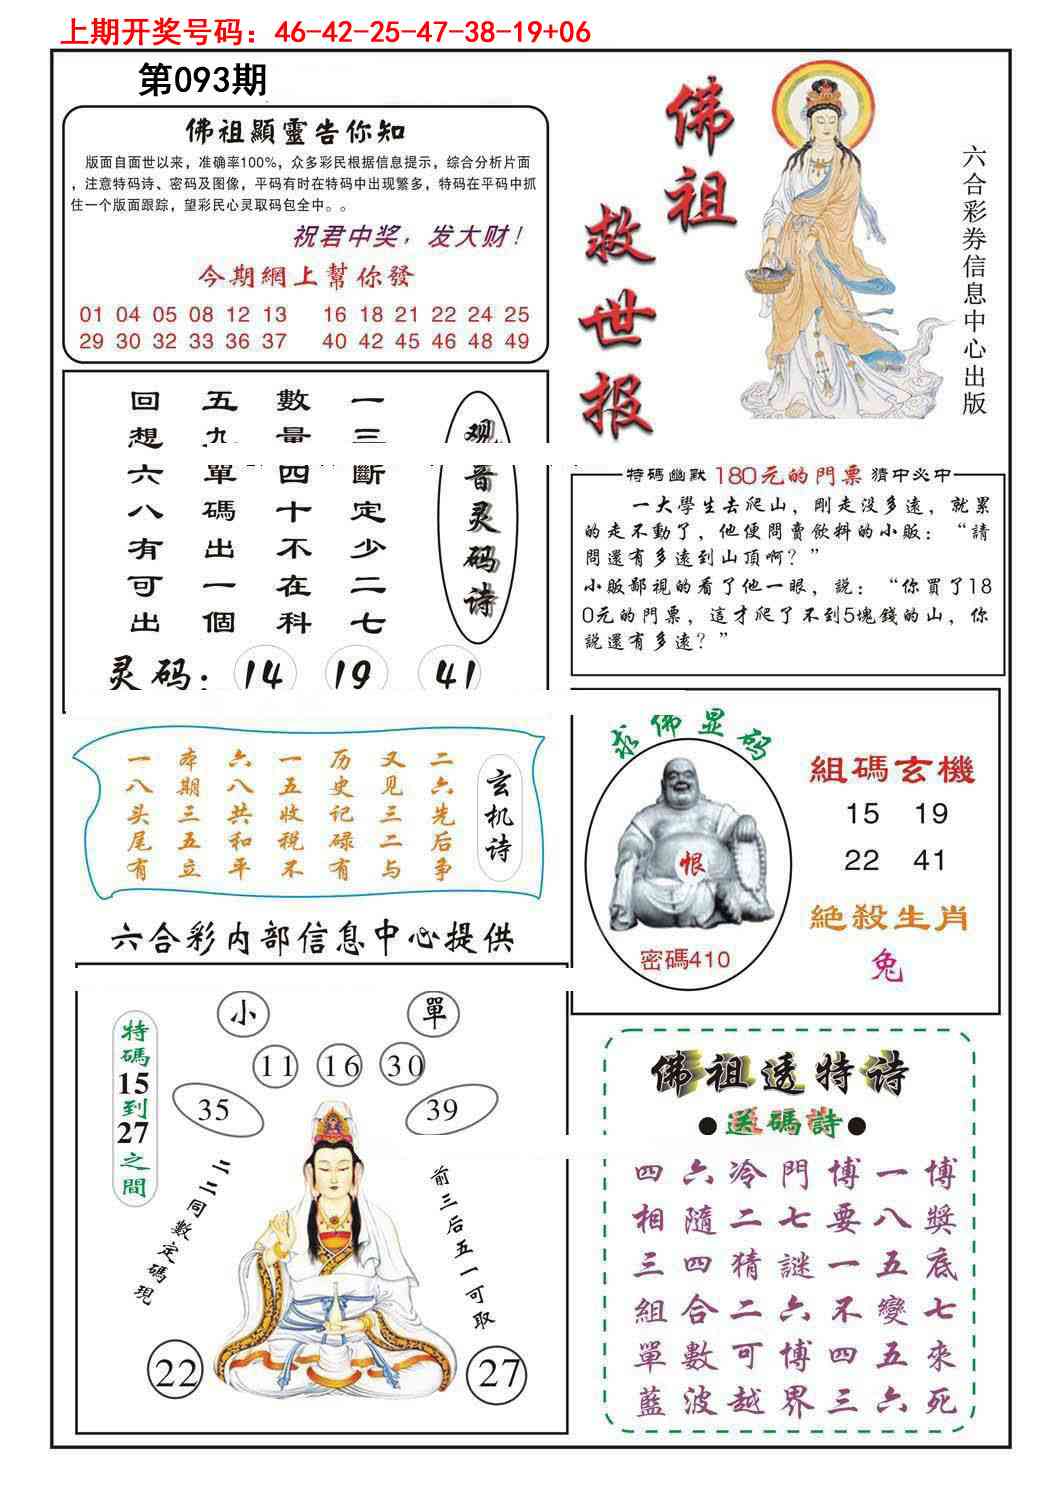 上期开奖号码：46-42-25-47-38-19+06
第093期
佛祖顯靈告你知
版面自面世以来，准确率100%，众多彩民根据信息提示，综合分析片面
，注意特码诗、密码及图像，平码有时在特码中出现繁多，特码在平码中抓
住一个版面跟踪，望彩民心灵取码包全中。。
祝君中奖，发大财！
今期網上幫你發
01 04 05 08 12 13 16 18 21 22 24 25
29 30 32 33 36 37 40 42 45 46 48 49
佛祖
救世报
六合彩券信息中心出版
观音灵码诗
一三斷定少二七
數量四十不在科
五九單碼出一個
回想六八有可出
灵码：14 19 41
特码幽默 180元的門票 猜中必中
一大學生去爬山，剛走没多遠，就累
的走不動了，他便問賣飲料的小販：“請
問還有多遠到山頂啊？”
小販鄙視的看了他一眼，説：“你買了18
0元的門票，這才爬了不到5塊錢的山，你
説還有多遠？”
玄机诗
二六先后争
又见三二与
历史记碌有
一五收税不
六八共和平
本期三五立
一八头尾有
六合彩内部信息中心提供
求佛显码
恨
密碼410
組碼玄機
15 19
22 41
絶殺生肖
兔
小 單
11 16 30
35 39
特碼15到27之間
二二同數定碼現
前三后五一可取
22 27
佛祖透特诗
●送碼詩●
博獎底七來死
一八五變五六
博要一不四三
門七謎六博界
冷二猜二可越
六隨四合數波
四相三組單藍